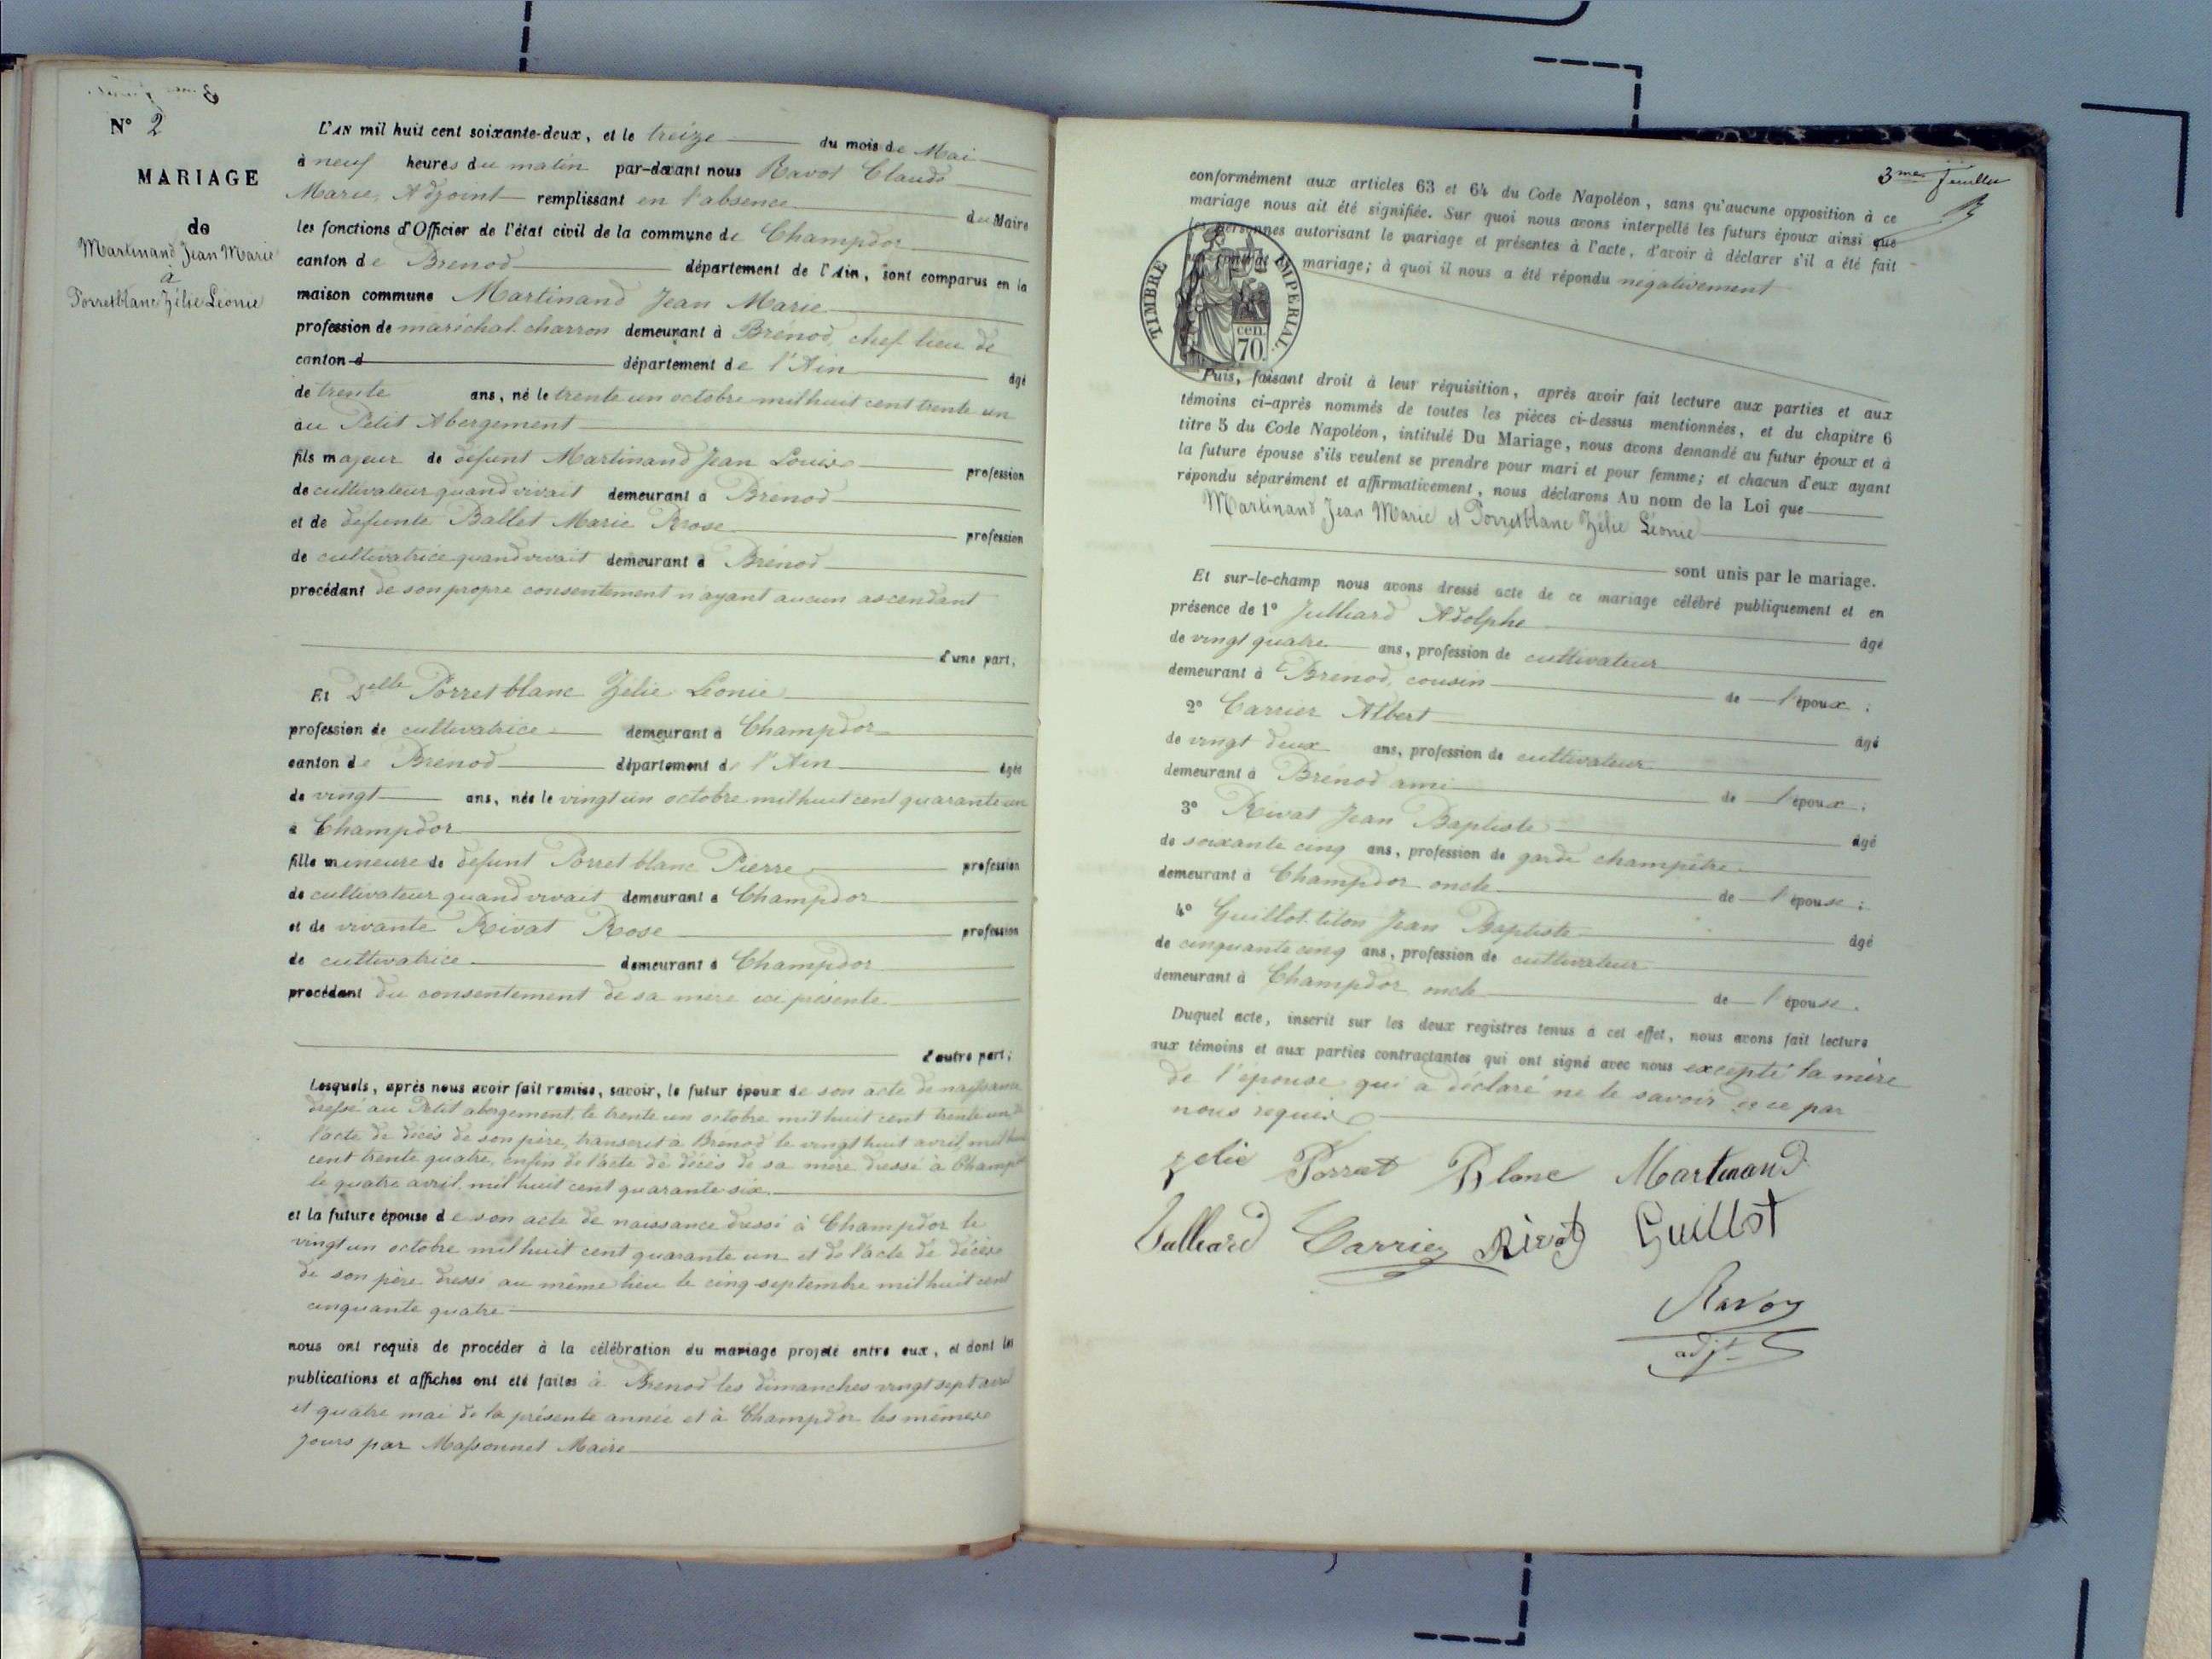 N° 2
MARIAGE
de
Martinand Jean Marie
à
Porretblanc Zélie Léonie
L'AN mil huit cent soixante-deux, et le treize du mois de Mai
à neuf heures du matin par-devant nous Ravot Claude
Marie, Adjoint remplissant en l'absence du Maire
les fonctions d'Officier de l'état civil de la commune de Champdor
canton de Brenod département de l'Ain, sont comparus en la
maison commune Martinand Jean Marie
profession de maréchal charron demeurant à Brénod, chef lieu de
canton d département de l'Ain âgé
de trente ans, né le trente un octobre mil huit cent trente un
au Petit Abergement
fils majeur de défunt Martinand Jean Louis profession
de cultivateur quand vivait demeurant à Brénod
et de défunte Ballet Marie Rose profession
de cultivatrice quand vivait demeurant à Brénod
procédant de son propre consentement n'ayant aucun ascendant
d'une part,
Et Delle Porret blanc Zélie Léonie
profession de cultivatrice demeurant à Champdor
canton de Brénod département de l'Ain âgée
de vingt ans, née le vingt un octobre mil huit cent quarante un
à Champdor
fille mineure de défunt Porret blanc Pierre profession
de cultivateur quand vivait demeurant à Champdor
et de vivante Rivat Rose profession
de cultivatrice demeurant à Champdor
procédant du consentement de sa mère ici présente
d'autre part;
Lesquels, après nous avoir fait remise, savoir, le futur époux de son acte de naissance
dressé au Petit abergement le trente un octobre mil huit cent trente un, de
l'acte de décès de son père, transcrit à Brénod le vingt huit avril mil huit
cent trente quatre, enfin de l'acte de décès de sa mère dressé à Champdor
le quatre avril mil huit cent quarante six
et la future épouse de son acte de naissance dressé à Champdor le
vingt un octobre mil huit cent quarante un et de l'acte de décès
de son père dressé au même lieu le cinq septembre mil huit cent
cinquante quatre
nous ont requis de procéder à la célébration du mariage projeté entre eux, et dont les
publications et affiches ont été faites à Brenod les dimanches vingt sept avril
et quatre mai de la présente année et à Champdor les mêmes
jours par Massonnet Maire
3me feuillet
conformément aux articles 63 et 64 du Code Napoléon, sans qu'aucune opposition à ce
mariage nous ait été signifiée. Sur quoi nous avons interpellé les futurs époux ainsi que
les personnes autorisant le mariage et présentes à l'acte, d'avoir à déclarer s'il a été fait
un contrat de mariage; à quoi il nous a été répondu négativement
TIMBRE IMPERIAL
cen.
70.
Puis, faisant droit à leur réquisition, après avoir fait lecture aux parties et aux
témoins ci-après nommés de toutes les pièces ci-dessus mentionnées, et du chapitre 6
titre 5 du Code Napoléon, intitulé Du Mariage, nous avons demandé au futur époux et à
la future épouse s'ils veulent se prendre pour mari et pour femme; et chacun d'eux ayant
répondu séparément et affirmativement, nous déclarons Au nom de la Loi que
Martinand Jean Marie et Porretblanc Zélie Léonie
sont unis par le mariage.
Et sur-le-champ nous avons dressé acte de ce mariage célébré publiquement et en
présence de 1° Julliard Adolphe âgé
de vingt quatre ans, profession de cultivateur
demeurant à Brenod, cousin de l'époux;
2° Carrier Albert âgé
de vingt deux ans, profession de cultivateur
demeurant à Brénod ami de l'époux;
3° Rivat Jean Baptiste âgé
de soixante cinq ans, profession de garde champêtre
demeurant à Champdor oncle de l'épouse;
4° Guillot titon Jean Baptiste âgé
de cinquante cinq ans, profession de cultivateur
demeurant à Champdor oncle de l'épouse.
Duquel acte, inscrit sur les deux registres tenus à cet effet, nous avons fait lecture
aux témoins et aux parties contractantes qui ont signé avec nous excepté la mère
de l'épouse qui a déclaré ne le savoir de ce par
nous requis
zelie Porret Blanc Martinand
Julliard Carrier Rivat Guillot
Ravot
adjt